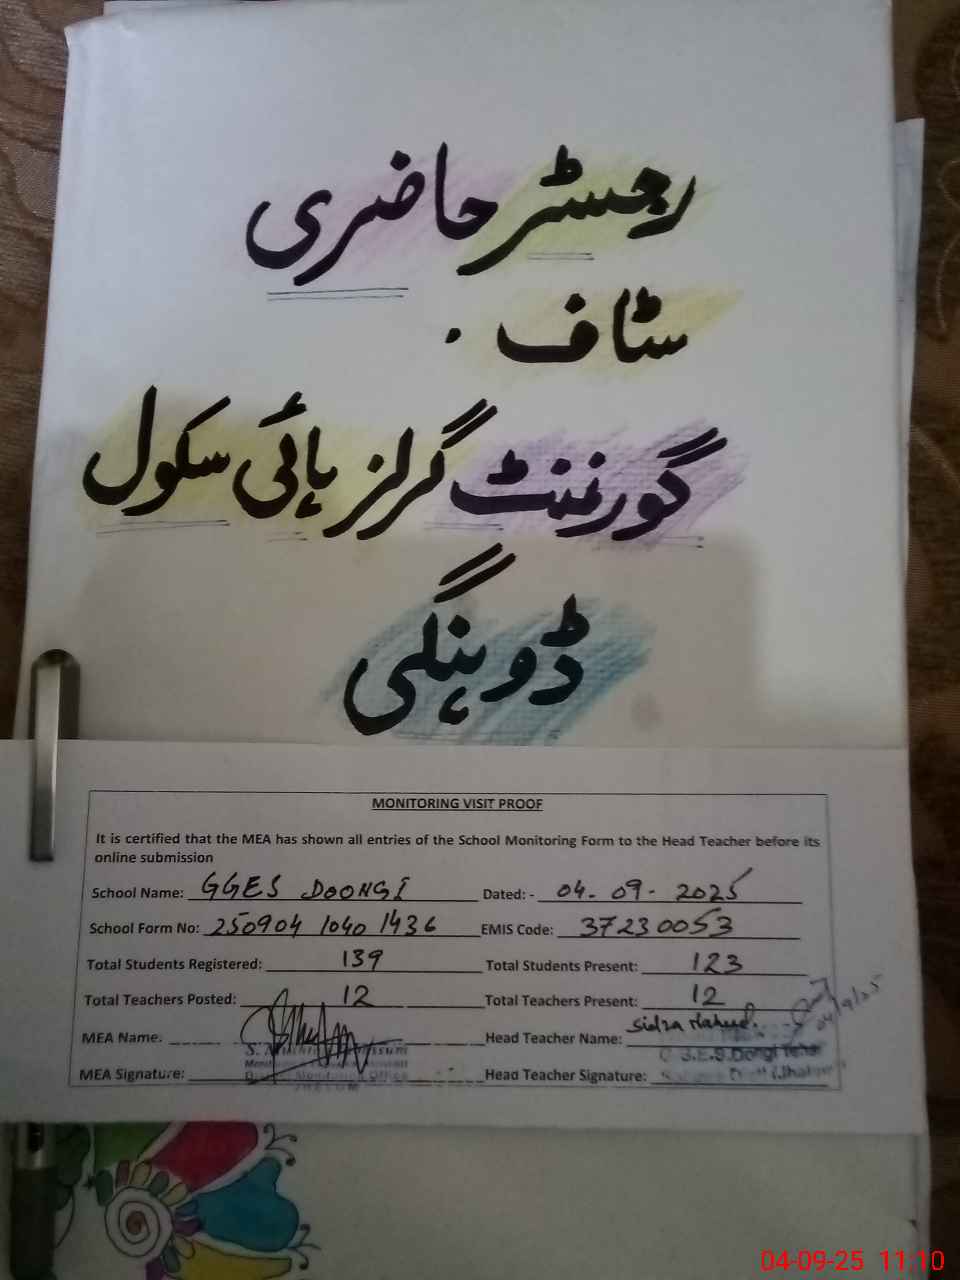 رجسٹر حاضری
سٹاف
گورنمنٹ گرلز ہائی سکول
ڈوہنگی
MONITORING VISIT PROOF
It is certified that the MEA has shown all entries of the School Monitoring Form to the Head Teacher before its
online submission
School Name: GGES DOONGI Dated: - 04-09-2025
School Form No: 250904 1040 1436 EMIS Code: 37230053
Total Students Registered: 139 Total Students Present: 123
Total Teachers Posted: 12 Total Teachers Present: 12
04/9/25
MEA Name. Head Teacher Name: Sidra
MEA Signature: Head Teacher Signature:
04-09-25 11:10